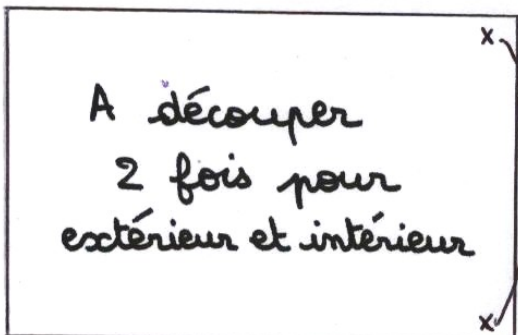 x
A découper
2 fois pour
extérieur et intérieur
x